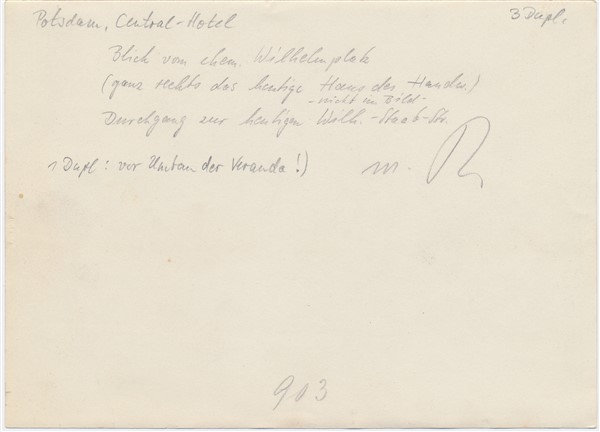 Potsdam, Central-Hotel
3 Dupl.
Blick vom ehem. Wilhelmplatz
(ganz rechts das heutige Haus des Handw.)
- nicht im Bild -
Durchgang zur heutigen Wilh.-Staab-Str.
1 Dupl: vor Umbau der Veranda!)
m. R
903